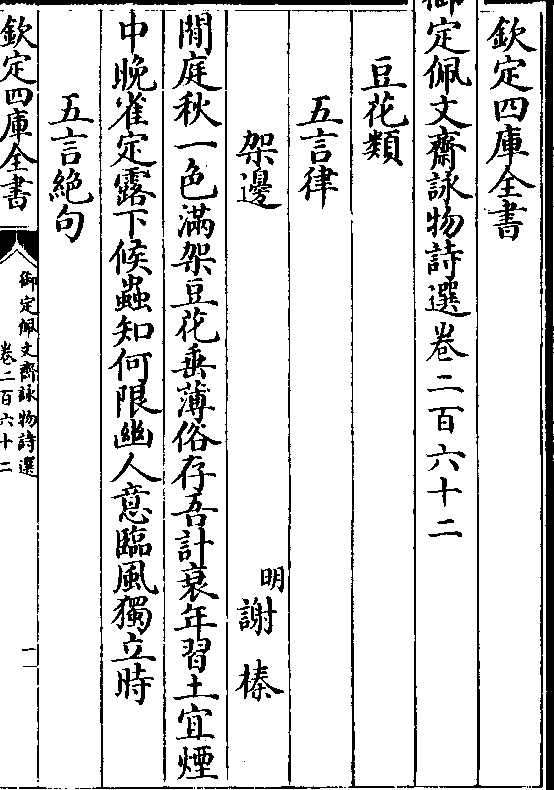 欽定四庫全書
御定佩文齋詠物詩選卷二百六十二
豆花類
五言律
架邊 明謝榛
閒庭秋一色滿架豆花垂薄俗存吾計衰年習土宜煙
中晚雀定露下候蟲知何限幽人意臨風獨立時
五言絶句
欽定四庫全書
御定佩文齋詠物詩選
卷二百六十二
一